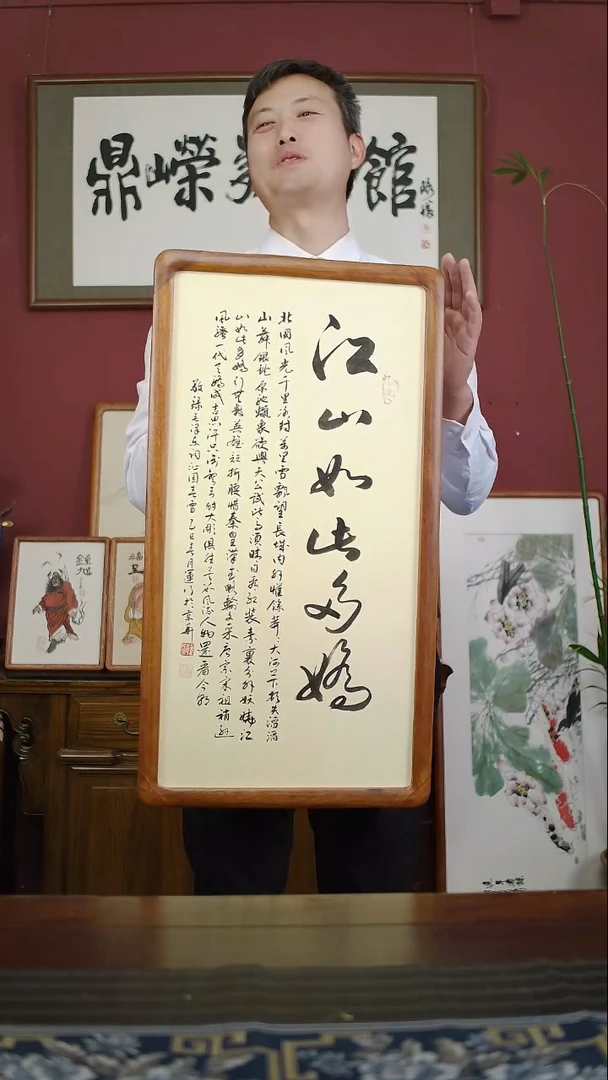 鼎嶸美館
江山如此多嬌
北國風光千里冰封萬里雪飄望長城內外惟餘莽〻大河上下頓失滔滔
山舞銀蛇原馳蠟象欲與天公試比高須晴日看紅裝素裹分外妖嬈江
山如此多嬌引無數英雄競折腰惜秦皇漢武略輸文采唐宗宋祖稍遜
風騷一代天驕成吉思汗只識彎弓射大雕俱往矣數風流人物還看今朝
敬錄毛澤東詞沁園春雪乙巳春月運於京華
鍾馗